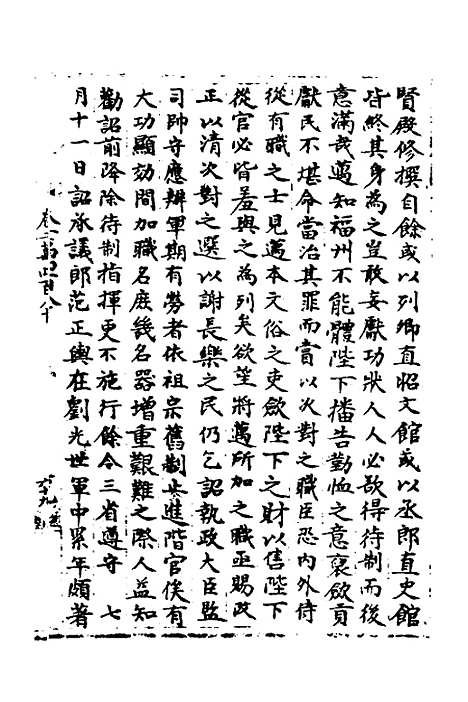 賢殿修撰自餘或以列卿直昭文館或以丞郎直史館
皆終其身為之豈敢妄獻功狀人人必欲得待制而後
意滿哉邁知福州不能體陛下播告勤恤之意裒斂貢
獻民不堪命當治其罪而賞以次對之職臣恐内外侍
從有職之士見邁本文俗之吏斂陛下之財以售陛下
從官必皆羞與之為列矣欲望將邁所加之職亟賜改
正以清次對之選以謝長樂之民仍乞詔執政大臣監
司帥守應辨軍期有勞者依祖宗舊制止進階官俟有
大功顯効間加職名庶幾名器增重艱難之際人益知
勸詔前降除待制指揮更不施行餘令三省遵守　七
月十一日詔承議郎范正輿在劉光世軍中累年頗著